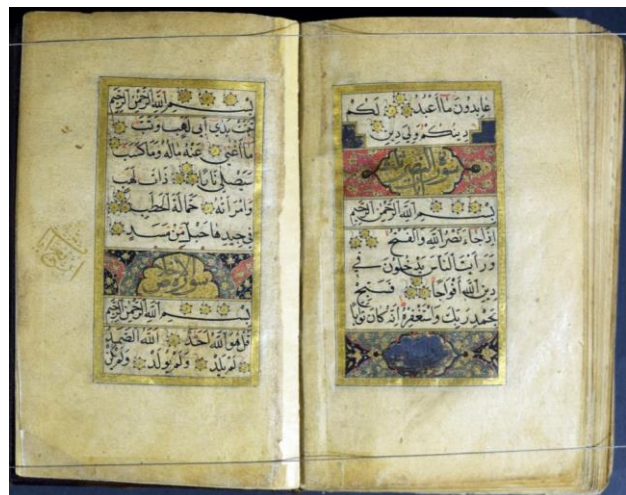 عابدون ما أعبد لكم
دينكم ولي دين
سورة النصر
بسم الله الرحمن الرحيم
إذا جاء نصر الله والفتح
ورأيت الناس يدخلون في
دين الله أفواجا فسبح
بحمد ربك واستغفره إنه كان توابا
بسم الله الرحمن الرحيم
تبت يدي أبي لهب وتب
ما أغنى عنه ماله وما كسب
سيصلى نارا ذات لهب
وامرأته حمالة الحطب
في جيدها حبل من مسد
سورة الإخلاص
بسم الله الرحمن الرحيم
قل هو الله أحد الله الصمد
لم يلد ولم يولد ولم يكن